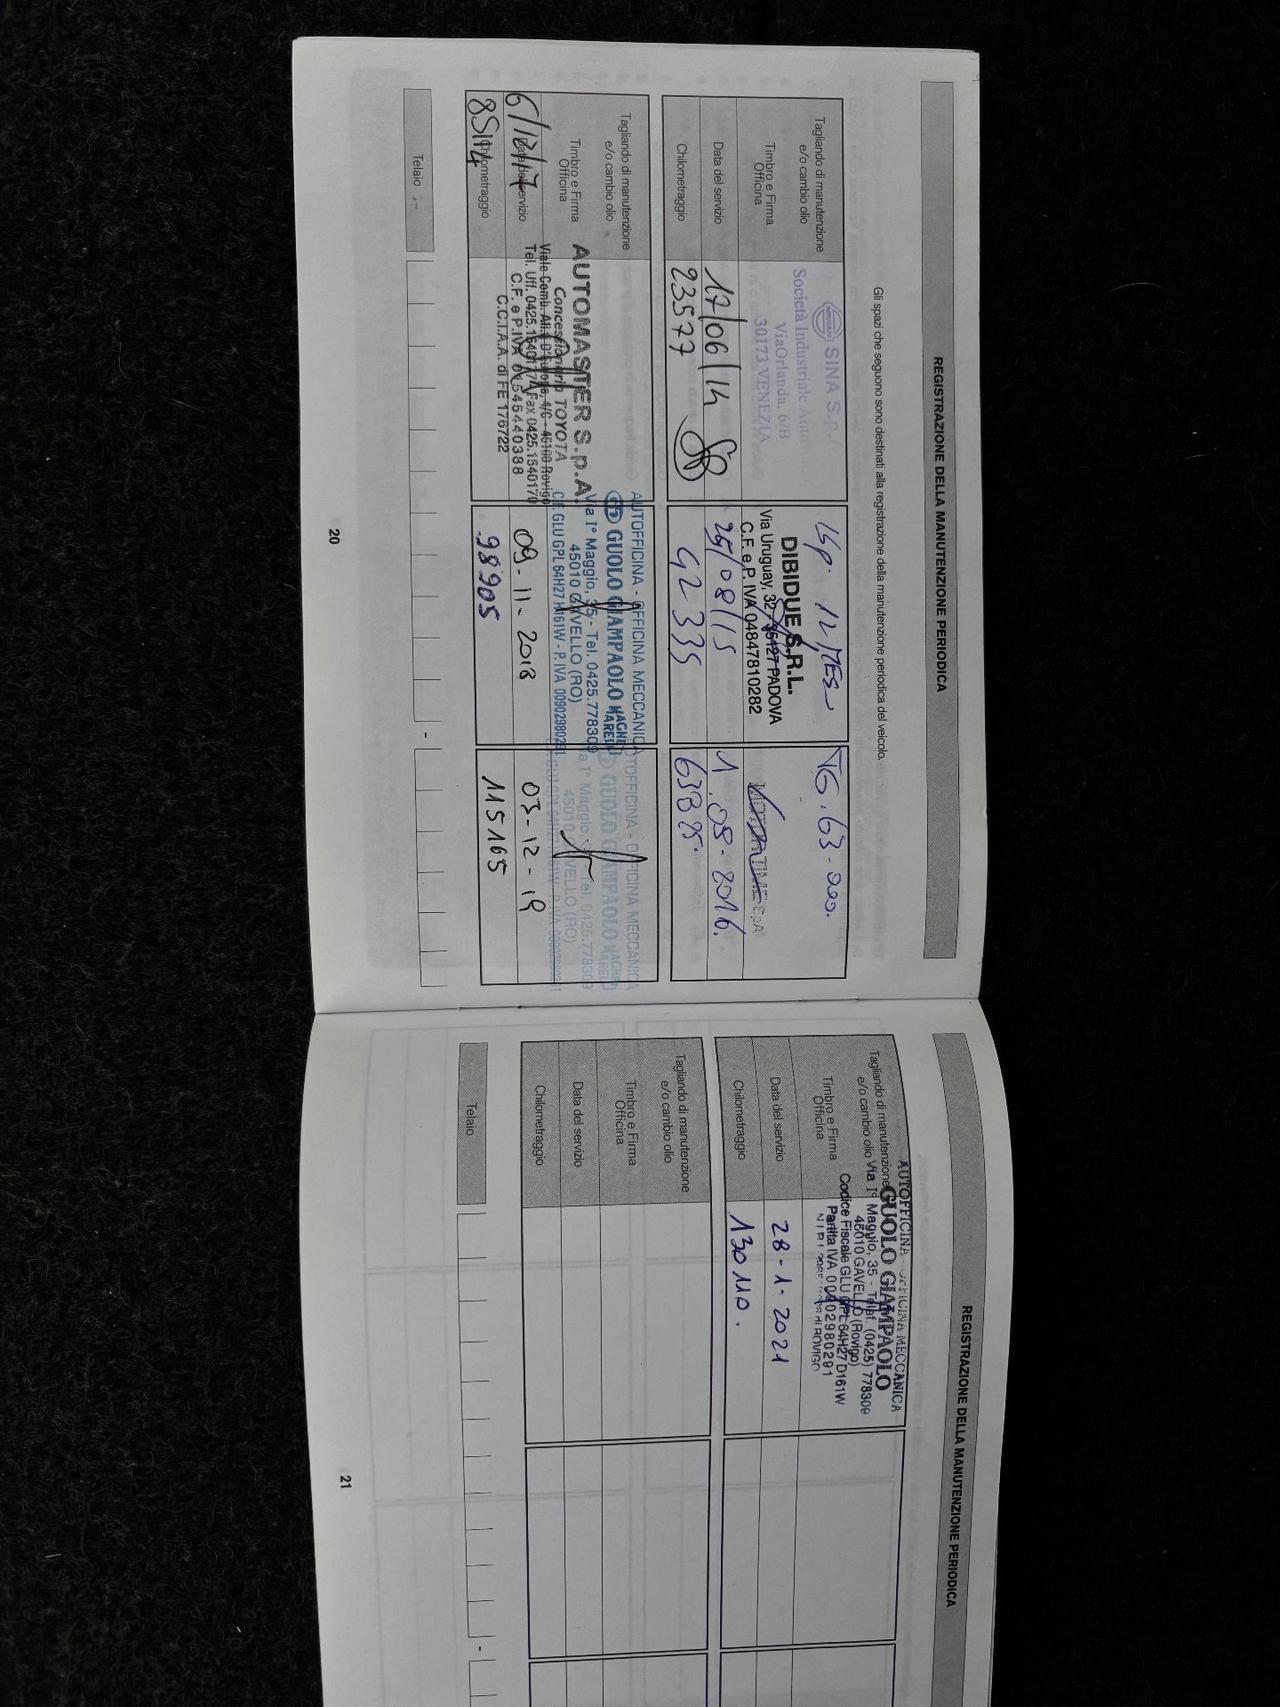 REGISTRAZIONE DELLA MANUTENZIONE PERIODICA
Gli spazi che seguono sono destinati alla registrazione della manutenzione periodica del veicolo.
Tagliando di manutenzione
e/o cambio olio
Timbro e Firma
Officina
Data del servizio
Chilometraggio
SINA S.p.
Società Industriale Aut
Via Orlanda, 6/B
30173 VENEZIA
17/06/14
23577
12 MES
DIBIDUE S.R.L.
Via Uruguay, 32 - 35127 PADOVA
C.F. e P. IVA 04847810282
25/08/15
42335
TG. 63.000.
SpA
1.08.2016.
63825.
Tagliando di manutenzione
e/o cambio olio
Timbro e Firma
Officina
Data del servizio
Chilometraggio
6/12/17
AUTOMASTER S.p.A.
Concessionaria TOYOTA
Tel. Uff. 0425.154017 Fax 0425.1540170
C.C.I.A.A. di FE 176722
AUTOFFICINA - OFFICINA MECCANICA
GUOLO GIAMPAOLO
MAGNETI
MARELLI
Via I° Maggio, 35 - Tel. 0425.778309
45010 GAVELLO (RO)
C.F. GLU GPL 64H27 D161W - P. IVA 00902980291
09-11-2018
98905
AUTOFFICINA - OFFICINA MECCANICA
GUOLO GIAMPAOLO
MAGNETI
MARELLI
Via I° Maggio, 35 - Tel. 0425.778309
45010 GAVELLO (RO)
03-12-19
115165
Telaio
-
20
REGISTRAZIONE DELLA MANUTENZIONE PERIODICA
Tagliando di manutenzione
e/o cambio olio
Timbro e Firma
Officina
Data del servizio
Chilometraggio
AUTOFFICINA - OFFICINA MECCANICA
GUOLO GIAMPAOLO
Via I° Maggio, 35 - Telef. (0425) 778309
45010 GAVELLO (Rovigo)
Codice Fiscale GLU GPL 64H27 D161W
Partita IVA 00902980291
28-1-2021
130110.
Tagliando di manutenzione
e/o cambio olio
Timbro e Firma
Officina
Data del servizio
Chilometraggio
Telaio
-
21